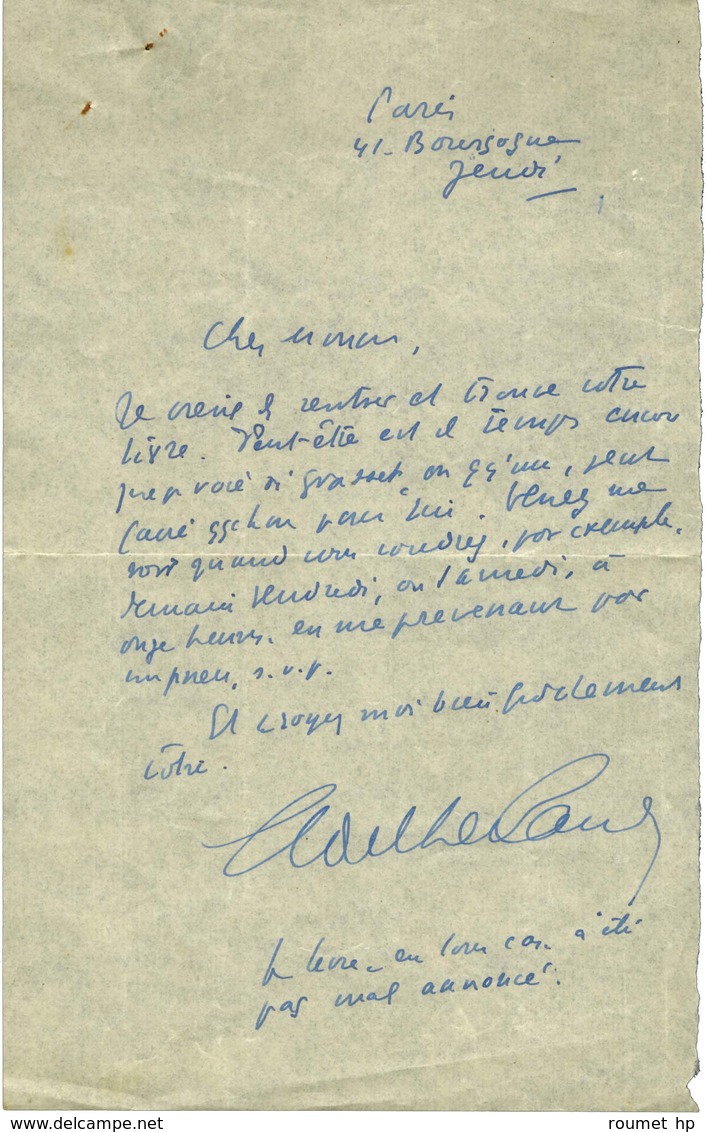 Paris
41. Bourgogne
Jeudi
Cher
Je viens de rentrer et trouve votre
livre. Peut-être est il temps encore
que je voie si Grasset, ou qq'un, peut
faire qqchose pour lui. Venez me
voir quand vous voudrez, par exemple,
demain Vendredi, ou Samedi, à
onze heures. en me prevenant par
un pneu, s.v.p.
Et croyez moi bien fidèlement
vôtre.
Le livre en tous cas a été
pas mal annoncé.
roumet hp